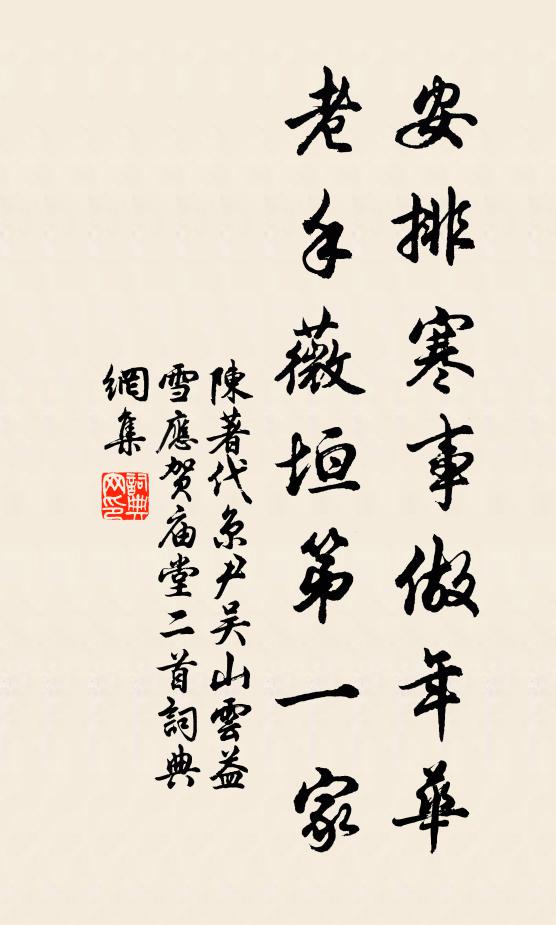 安排寒事做年華
老手薇垣第一家
陳著代京尹吳山雲益
雪應賀庙堂二首詞典
網集
詞典网印